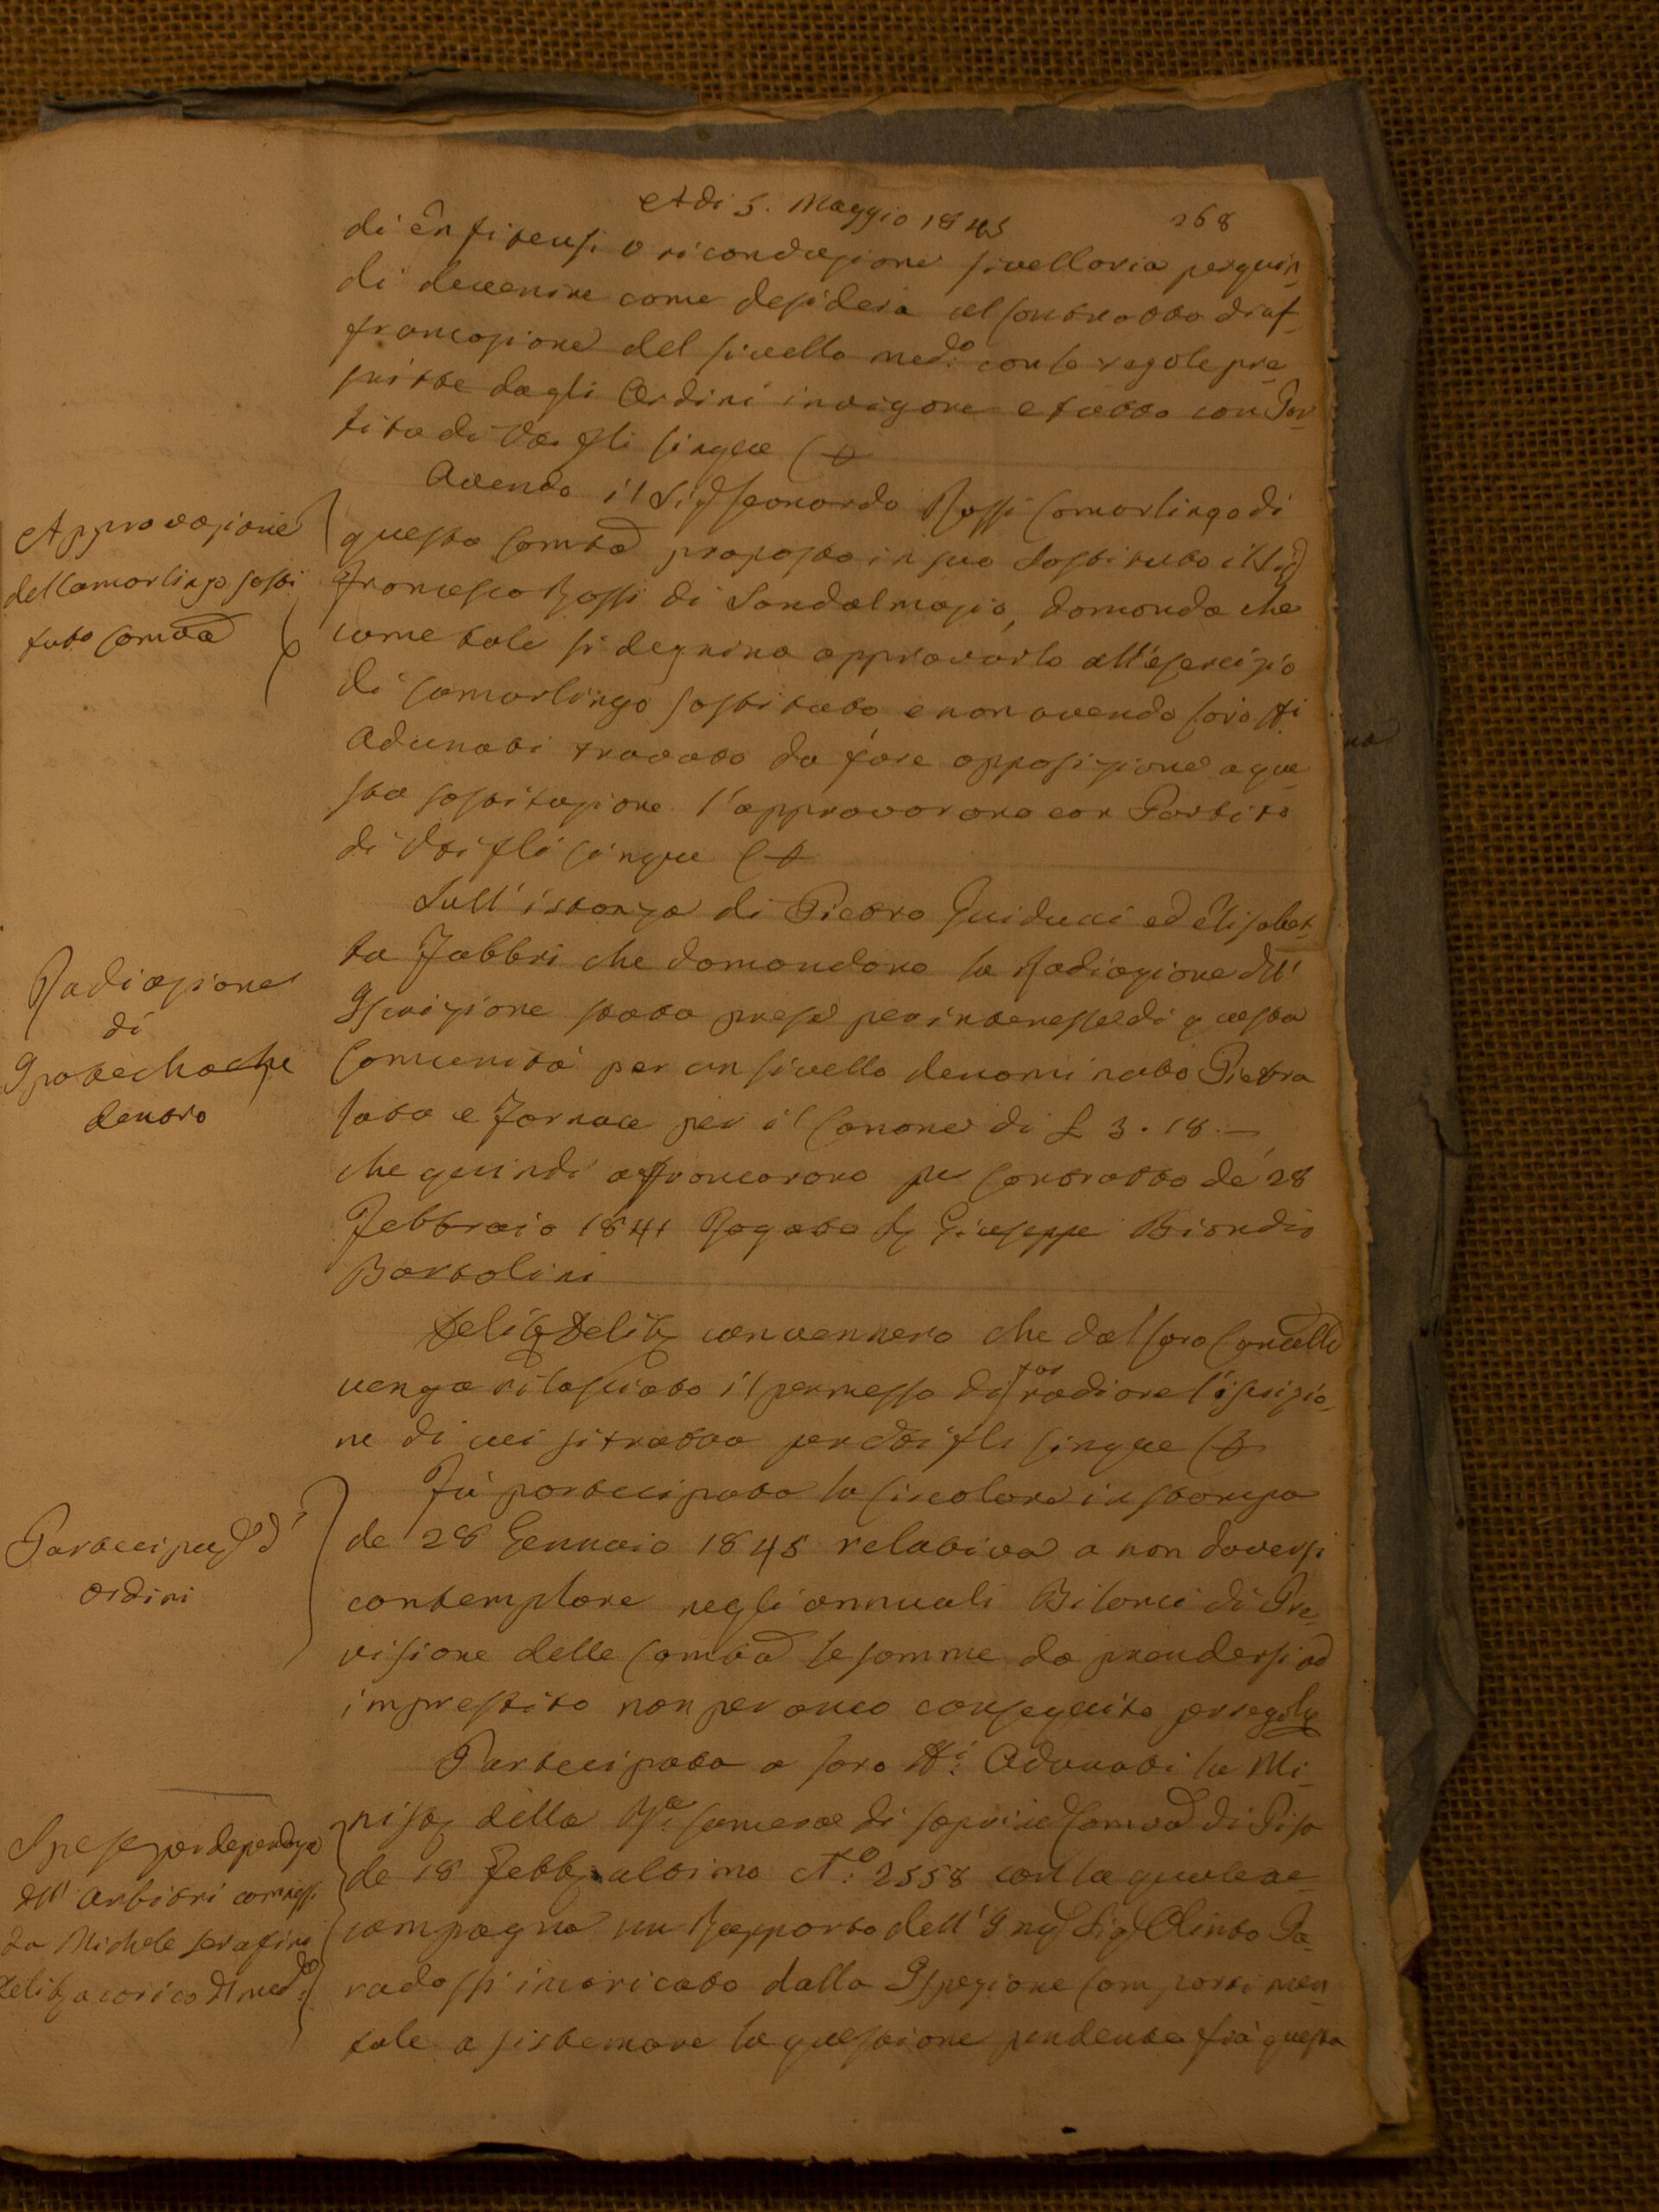 Adi 5. Maggio 1845
268
di Enfiteusi o riconduzione livellaria per quin-
di devenire come desidera al Contratto di af-
francazione del livello med.o con le regole pre-
scritte dagli Ordini in vigore e tutto con Par-
tito di Voti fli cinque C
Approvazione
del Camarlingo Sosti
tuto Comtà
Avendo il Sig Leonardo Rossi Camarlingo di
questa Comtà proposto in suo Sostituto il Sig
Francesco Rossi di Sandalmazio, domanda che
come tale si degnino approvarlo all'esercizio
di Camarlingo Sostituto e non avendo loro SSri
Adunati trovato da fare opposizione a que
sta sostituzione l'approvarono con Partito
di Vti fli cinque C
Radiazione
di
Ipoteche
dentro
Sull'istanza di Pietro Guiducci ed Elisabet-
ta Fabbri che domandano la Radiazione dell'
Iscrizione stata presa per interesse di questa
Comunità per un livello denominato Pietra
lata e Fornace per il Canone di £ 3.18.—
che quindi affrancarono per Contratto de' 28
Febbraio 1841 Rogato Sr Giuseppe Biondi
Bartolini
Delib Delib convennero che dal loro Cancell
venga rilasciato il permesso di far radiare l'iscrizio-
ne di cui si tratta per Vti fli cinque C
Partecip d'
Ordini
Fù partecipata la Circolare in stampa
de 28 Gennaio 1845 relativa a non doversi
contemplare negli annuali Bilanci di Pre
visione delle Comtà le somme da prendersi ad
imprestito non per anco conseguito per regola
Spese per dependenza
dll' Arbitri commessi
da Michele Serafini
Delib a carico dl med.o
Partecipata a loro SSri Adunati la Mi-
nist della Ra Camera di Sopri Comtà di Pisa
de 18 Febb ultimo N.o 2558 con la quale ac-
compagna un Rapporto dell'Ing Sig Olinto Pa-
radossi incaricato dalla Ispezione Compartimen-
tale a sistemare la questione pendente frà questa